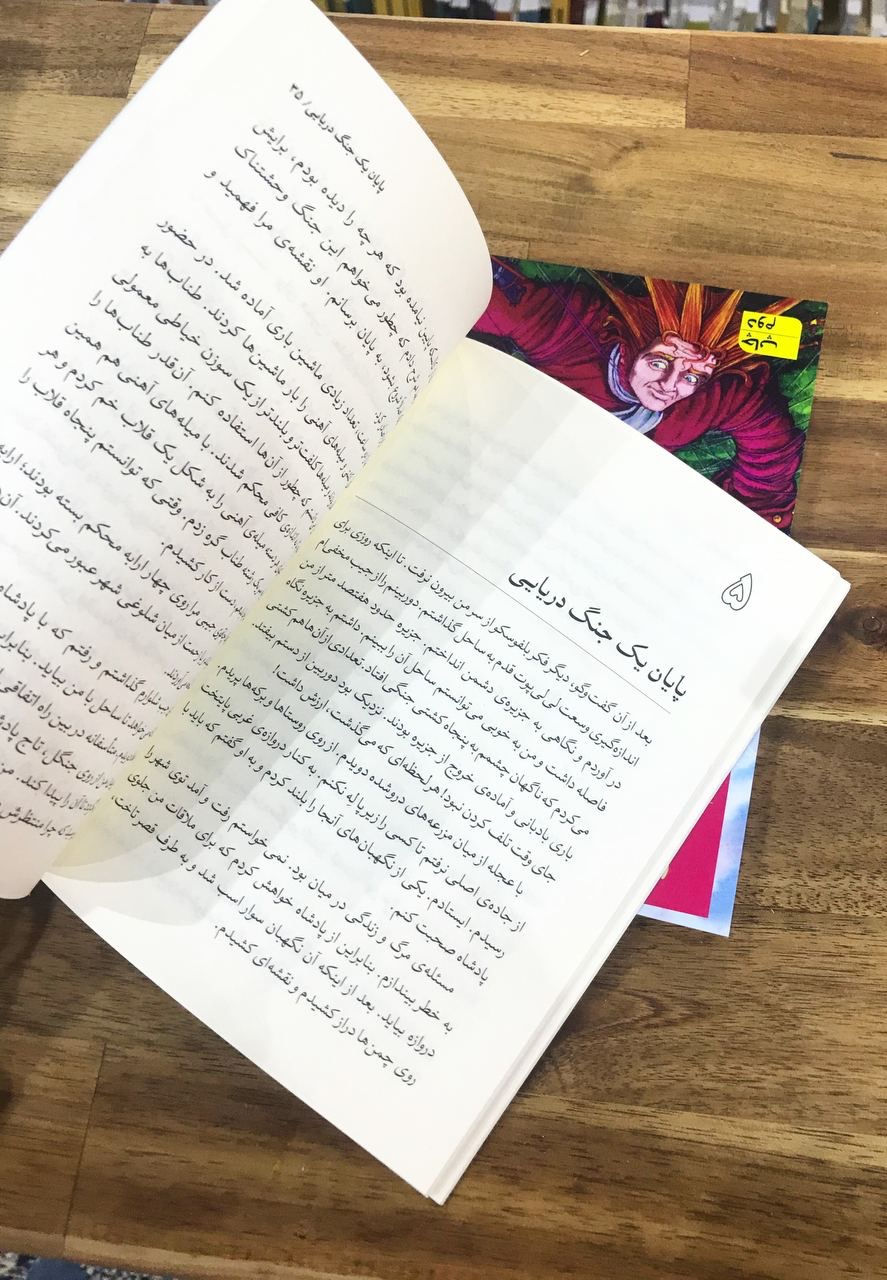 ۵
پایان یک جنگ دریایی
بعد از آن گفت‌وگو، دیگر فکر بلفوسکو از سر من بیرون نرفت، تا اینکه روزی برای
اندازه‌گیری وسعت لی‌لی‌پوت قدم به ساحل گذاشتم. دوربینم را از جیب مخفی‌ام
در آوردم و نگاهی به جزیره‌ی دشمن انداختم. جزیره حدود هفتصد متر از من
فاصله داشت و من به خوبی می‌توانستم ساحل آن را ببینم. داشتم به جزیره نگاه
می‌کردم که ناگهان چشمم به پنجاه کشتی جنگی افتاد. تعدادی از آن‌ها هم کشتی
بازی بادبانی و آماده‌ی خروج از جزیره بودند. نزدیک بود دوربین از دستم بیفتد.
جای وقت تلف کردن نبود! هر لحظه‌ای که می‌گذشت، ارزش داشت!
با عجله از میان مزرعه‌های درو شده دویدم. از روی روستاها و برکه‌ها پریدم.
از جاده‌ی اصلی نرفتم تا کسی را زیر پا له نکنم. به کنار دروازه‌ی غربی پایتخت
رسیدم. ایستادم. یکی از نگهبان‌های آنجا را بلند کردم و به او گفتم که باید با
پادشاه صحبت کنم.
مسئله‌ی مرگ و زندگی در میان بود. نمی‌خواستم رفت و آمد توی شهر را
به خطر بیندازم. بنابراین از پادشاه خواهش کردم که برای ملاقات من جلوی
دروازه بیاید. بعد از اینکه آن نگهبان سوار اسب شد و به طرف قصر تاخت،
روی چمن‌ها دراز کشیدم و نقشه‌ای کشیدم.
پایان یک جنگ دریایی/ ۳۵
نیامده بود که هر چه را دیده بودم، برایش
که چطور می‌خواهم این جنگ وحشتناک
به پایان برسانم. او نقشه‌ی مرا فهمید و
تعداد زیادی ماشین باری آماده شد. در حضور
میله‌های آهنی را بار ماشین‌ها کردند. طناب‌ها به
کلفت‌تر و بلندتر از یک سوزن خیاطی معمولی
که چطور از آن‌ها استفاده کنم. آن‌قدر طناب‌ها را
کافی محکم شدند. با میله‌های آهنی هم همین
میله‌ی آهنی را به شکل یک قلاب خم کردم و هر
طناب گره زدم. وقتی که توانستم پنجاه قلاب را
دست از کار کشیدم.
مرا روی چهار ارابه محکم بسته بودند؛
از میان شلوغی شهر عبور می‌کردند.
گذاشتم و رفتم که با پادشاه
تا ساحل با من بیاید. بنابراین
متأسفانه در بین راه اتفاقی
از روی جنگل، تاج
را پیدا کند.
جلد
دوم